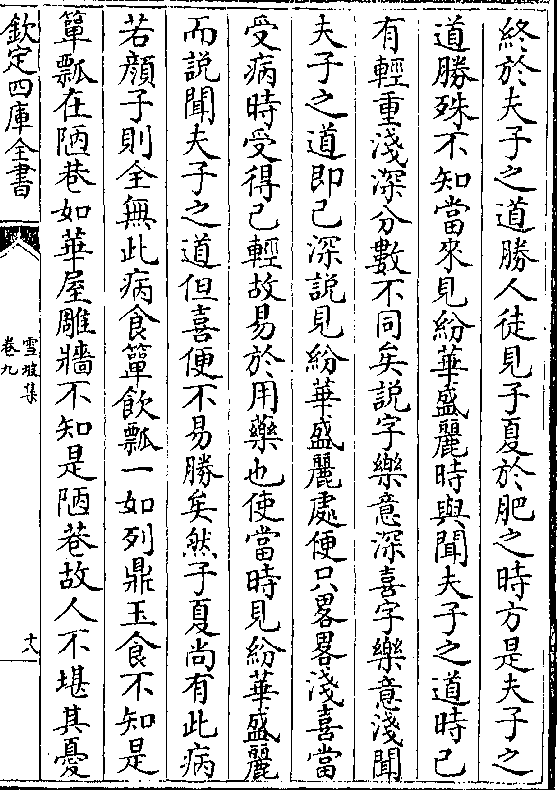 終於夫子之道勝人徒見子夏於肥之時方是夫子之
道勝殊不知當來見紛華盛麗時與聞夫子之道時已
有輕重淺深分數不同矣說字樂意深喜字樂意淺聞
夫子之道即已深說見紛華盛麗處便只畧畧淺喜當
受病時受得已輕故易於用藥也使當時見紛華盛麗
而説聞夫子之道但喜便不易勝矣然子夏尚有此病
若顔子則全無此病食簞飲瓢一如列鼎玉食不知是
簞瓢在陋巷如華屋雕牆不知是陋巷故人不堪其憂
欽定四庫全書
雪坡集
卷九
十八